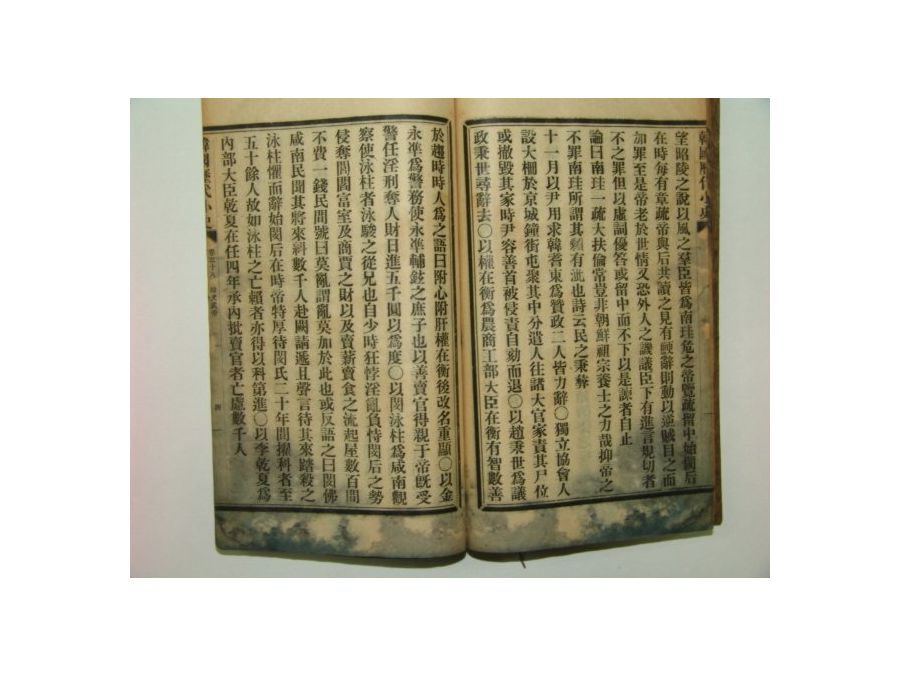 韓國歷代小史
望昭陵之說以風之羣臣皆爲南珪危之帝覽疏留中始閔后
在時每有章疏帝與后共讀之見有鯁辭則動以逆賊目之而
加罪至是帝老於世情又恐外人之譏議臣下有進言規切者
不之罪但以虛詞優答或留中而不下以是諫者自止
論曰南珪一疏大扶倫常豈非朝鮮祖宗養士之力哉抑帝之
不罪南珪所謂其顙有泚也詩云民之秉彝
十一月以尹用求韓耆東爲贊政二人皆力辭〇獨立協會人
設大柵於京城鐘街屯聚其中分遣人往諸大官家責其尸位
或撤毀其家時尹容善首被侵責自劾而退〇以趙秉世爲議
政秉世尋辭去〇以權在衡爲農商工部大臣在衡有智數善
於趨時時人爲之語曰附心附肝權在衡後改名重顯〇以金
永準爲警務使永準輔鉉之庶子也以善賣官得親于帝旣受
警任淫刑奪人財日進五千圓以爲度〇以閔泳柱爲咸南觀
察使泳柱者泳駿之從兄也自少時狂悖淫亂負恃閔后之勢
侵奪閭閻富室及商賈之財以及賣薪賣食之流起屋數百間
不費一錢民間號曰莫亂謂亂莫加於此也或反語之曰閔佛
咸南民聞其將來糾數千人赴闕請遞且聲言待其來踏殺之
泳柱懼而辭始閔后在時帝特厚待閔氏二十年間擢科者至
五十餘人故如泳柱之亡賴者亦得以科第進〇以李乾夏爲
內部大臣乾夏在任四年承內批賣官者亡慮數千人